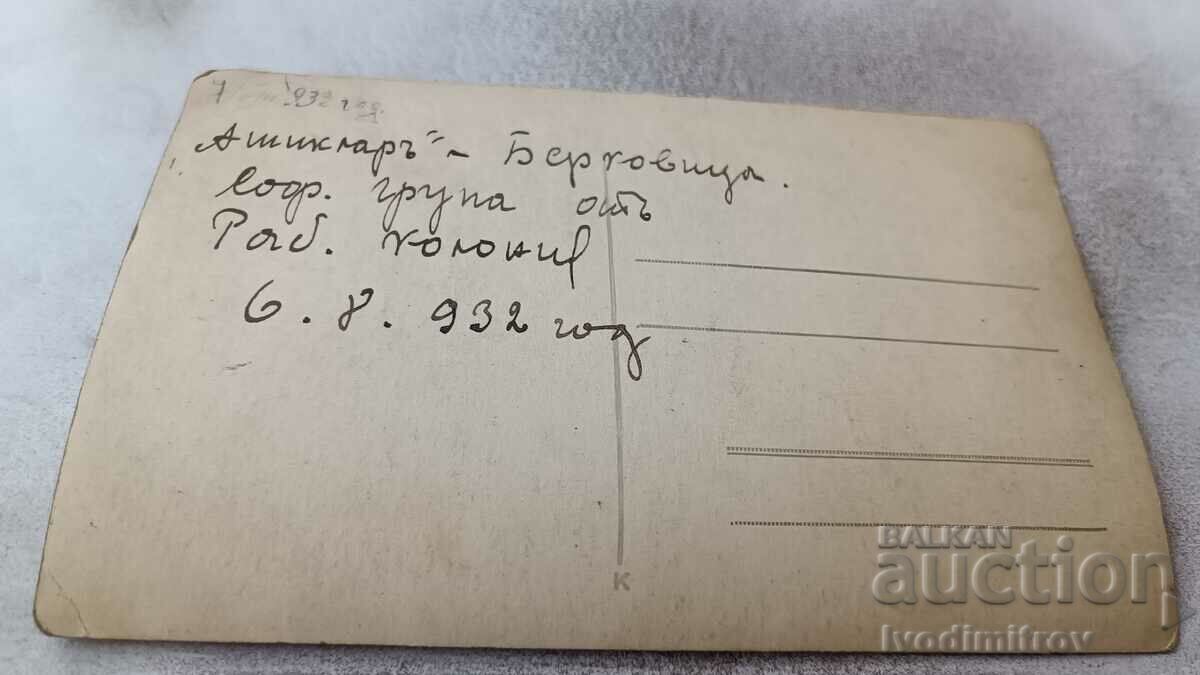 7 932 год.
„Ашикларъ" - Берковица.
Соф. група отъ
Раб. колония
6. 8. 932 год
K
BALKAN
auction
Ivodimitrov